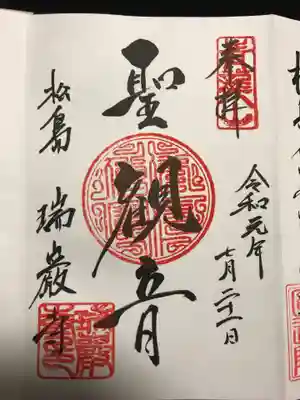 奉拝
令和元年
七月二十一日
聖観音
松島 瑞巌寺